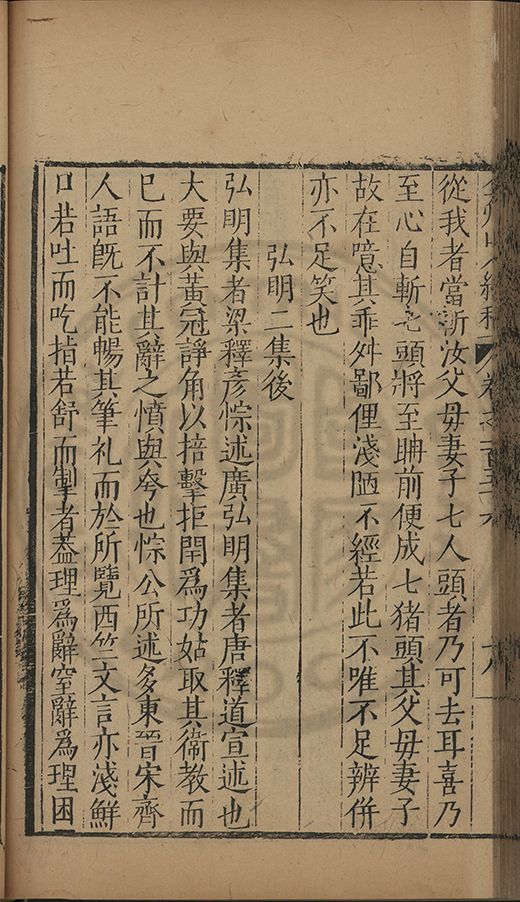 弇州山人續稿 卷之一百五十六 十八
從我者當斬汝父母妻子七人頭者乃可去耳喜乃
至心自斬七頭將至聃前便成七猪頭其父母妻子
故在噫其乖舛鄙俚淺陋不經若此不唯不足辨併
亦不足笑也
弘明二集後
弘明集者梁釋彥悰述廣弘明集者唐釋道宣述也
大要與黃冠諍角以掊擊拒閈爲功姑取其衞教而
已而不計其辭之憤與夸也悰公所述多東晉宋齊
人語旣不能暢其筆札而於所覽西竺文言亦淺鮮
口若吐而吃指若舒而掣者葢理爲辭窒辭爲理困